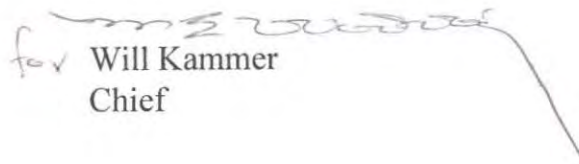 for Will Kammer
Chief